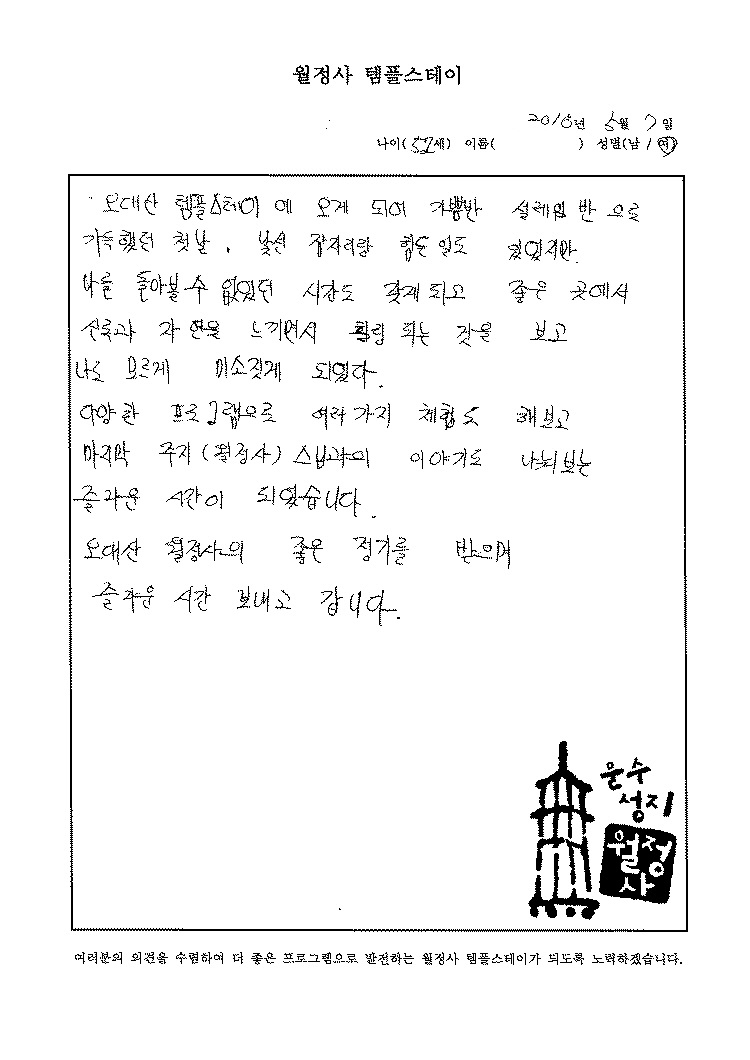 월정사 템플스테이
2018년 5월 7일
나이(52세) 이름( ) 성별(남/여)
오대산 템플스테이에 오게 되어 기쁨반 설레임 반으로
가득했던 첫날, 낯선 잠자리랑 힘든일도 있었지만
나를 돌아볼 수 없었던 시간도 갖게 되고 좋은 곳에서
신록과 자연을 느끼면서 힐링 되는 것을 보고
나도 모르게 미소짓게 되었다.
다양한 프로그램으로 여러가지 체험도 해보고
마지막 주지(월정사)스님과의 이야기도 나눠보는
즐거운 시간이 되었습니다.
오대산 월정사의 좋은 정기를 받으며
즐거운 시간 보내고 갑니다.
문수
성지
월정
사
여러분의 의견을 수렴하여 더 좋은 프로그램으로 발전하는 월정사 템플스테이가 되도록 노력하겠습니다.